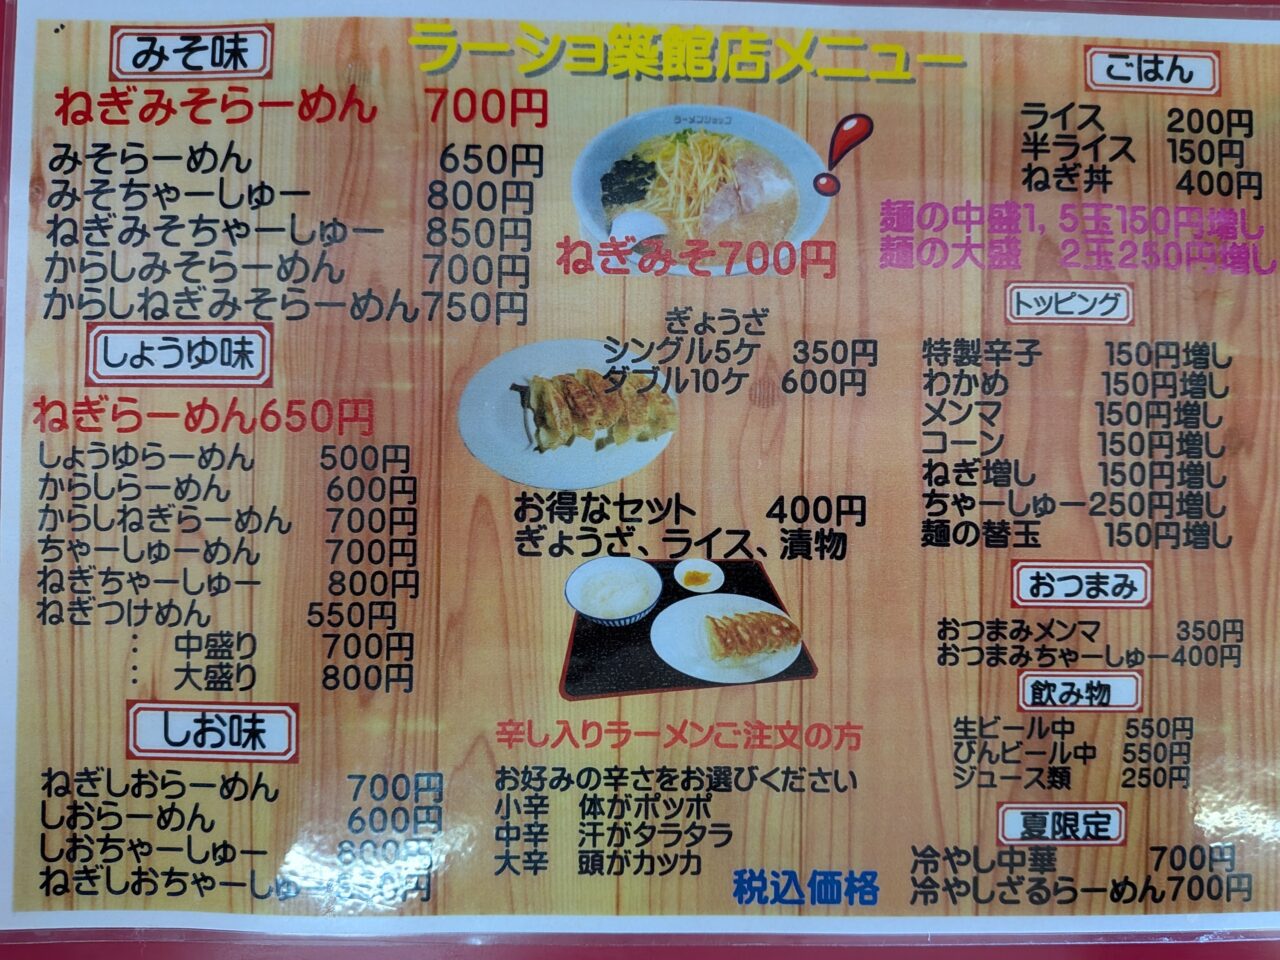 ラーショ築館店メニュー
みそ味
ねぎみそらーめん 700円
みそらーめん 650円
みそちゃーしゅー 800円
ねぎみそちゃーしゅー 850円
からしみそらーめん 700円
からしねぎみそらーめん750円
しょうゆ味
ねぎらーめん650円
しょうゆらーめん 500円
からしらーめん 600円
からしねぎらーめん 700円
ちゃーしゅーめん 700円
ねぎちゃーしゅー 800円
ねぎつけめん 550円
: 中盛り 700円
: 大盛り 800円
しお味
ねぎしおらーめん 700円
しおらーめん 600円
しおちゃーしゅー 800円
ねぎしおちゃーしゅー 円
ラーメンショップ
ねぎみそ700円
ぎょうざ
シングル5ケ 350円
ダブル10ケ 600円
お得なセット 400円
ぎょうざ、ライス、漬物
辛し入りラーメンご注文の方
お好みの辛さをお選びください
小辛 体がポッポ
中辛 汗がタラタラ
大辛 頭がカッカ
税込価格
ごはん
ライス 200円
半ライス 150円
ねぎ丼 400円
麺の中盛1,5玉150円増し
麺の大盛 2玉250円増し
トッピング
特製辛子 150円増し
わかめ 150円増し
メンマ 150円増し
コーン 150円増し
ねぎ増し 150円増し
ちゃーしゅー250円増し
麺の替玉 150円増し
おつまみ
おつまみメンマ 350円
おつまみちゃーしゅー400円
飲み物
生ビール中 550円
びんビール中 550円
ジュース類 250円
夏限定
冷やし中華 700円
冷やしざるらーめん700円